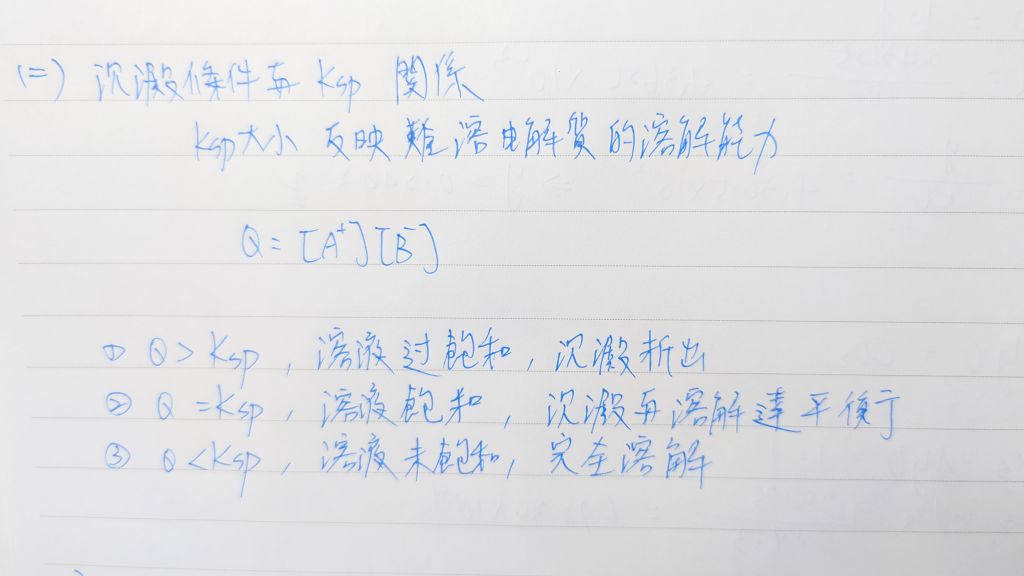 (二) 沉澱條件与 Ksp 關係
Ksp大小 反映難溶电解質的溶解能力
Q = [A⁺][B⁻]
① Q > Ksp , 溶液过飽和 , 沉澱析出
② Q = Ksp , 溶液飽和 , 沉澱与溶解達平衡
③ Q < Ksp , 溶液未飽和 , 完全溶解